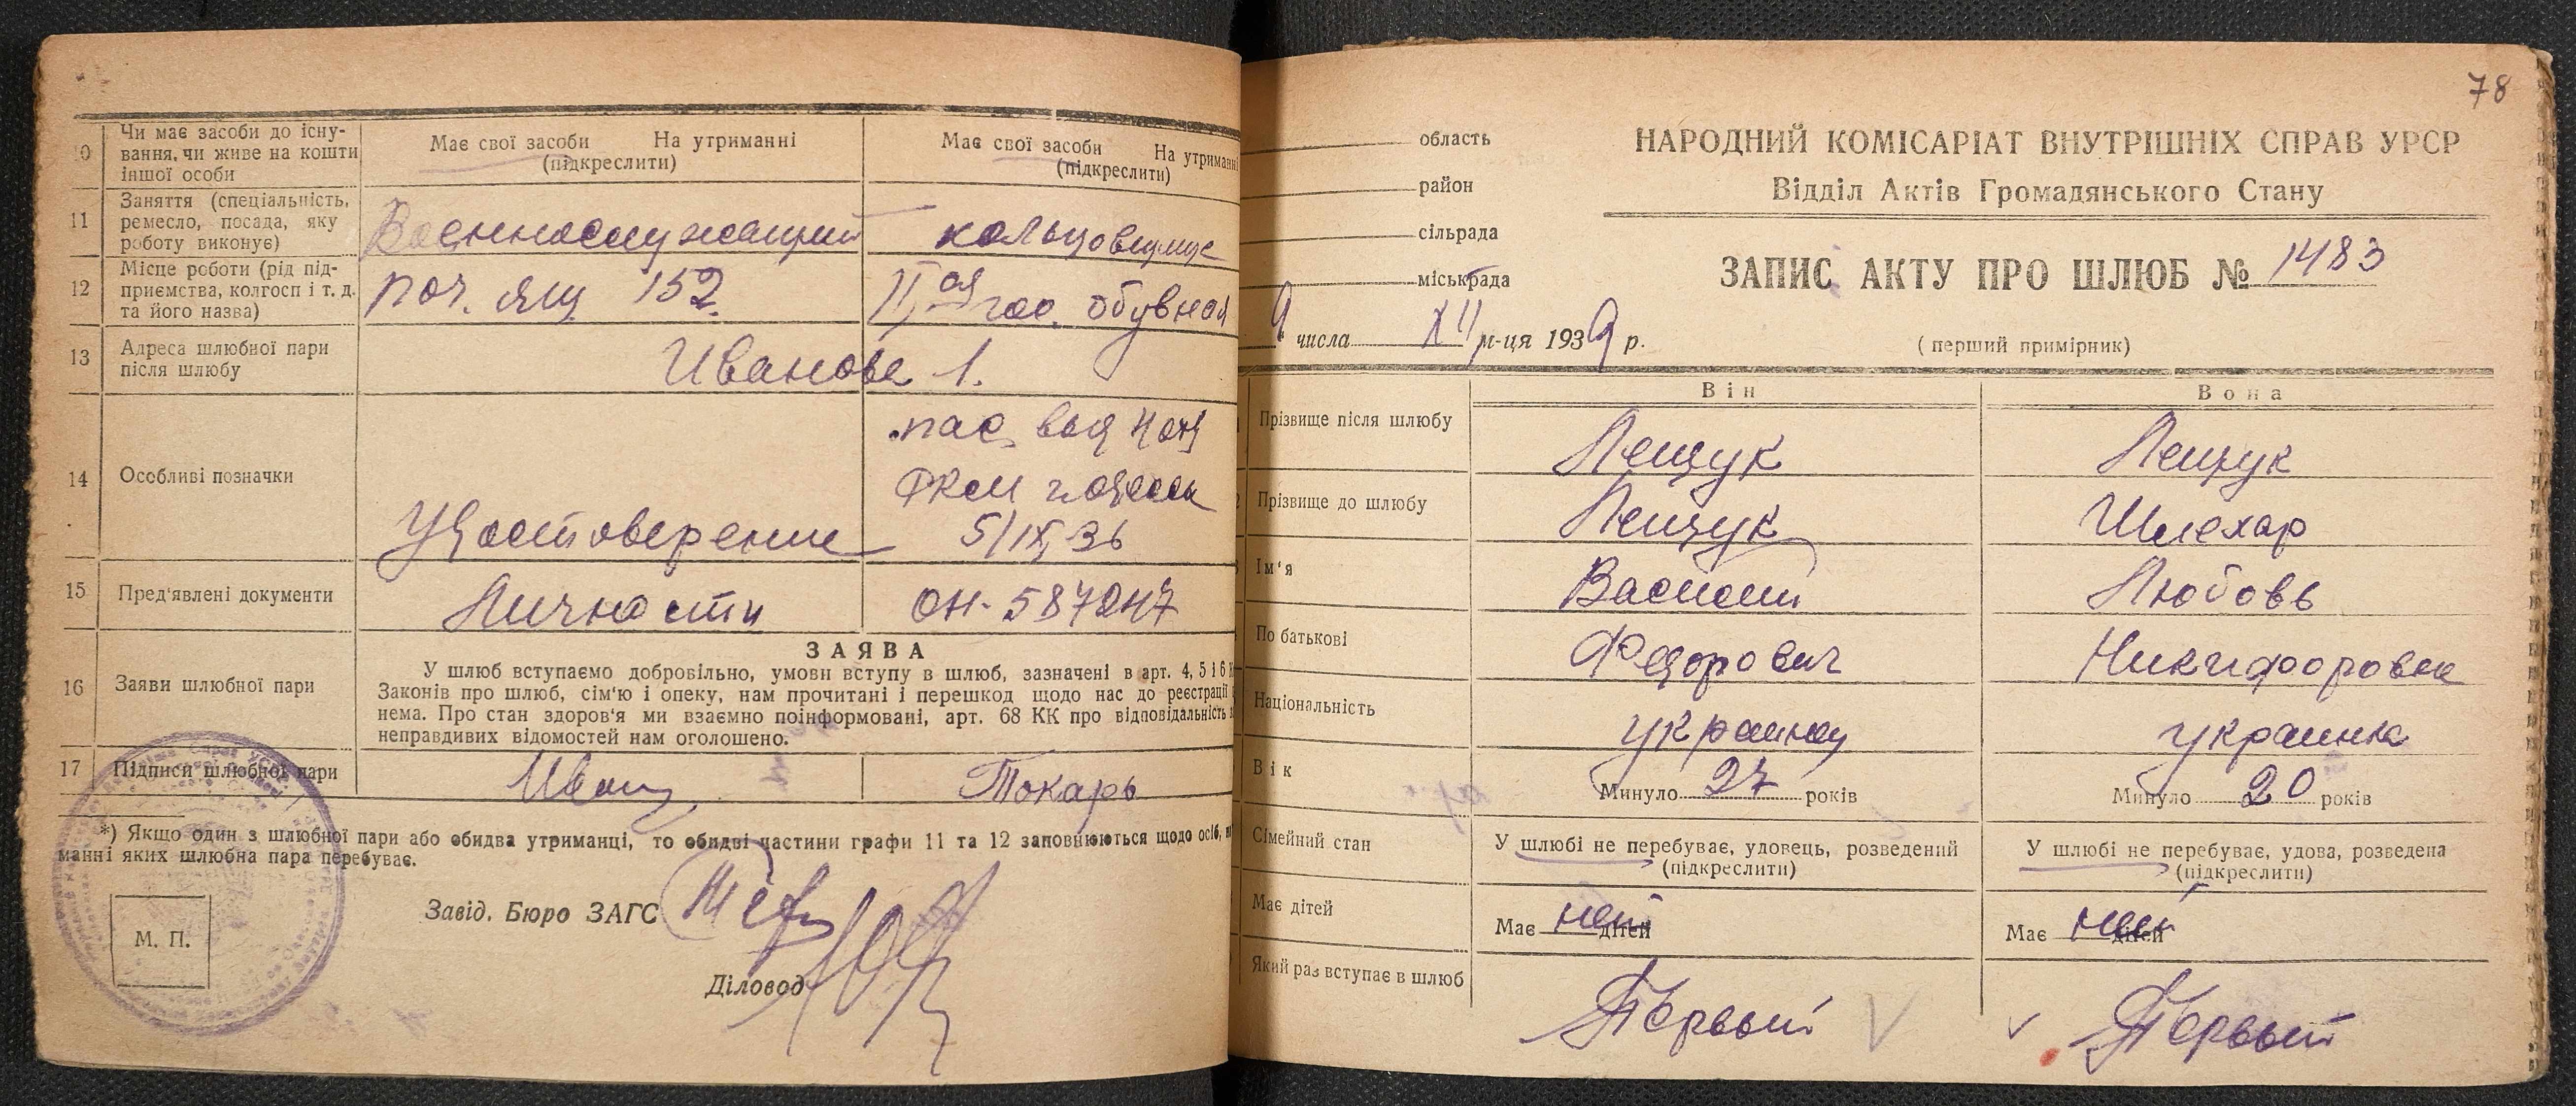 10 Чи має засоби до існу-
вання, чи живе на кошти
іншої особи
Має свої засоби На утриманні
(підкреслити)
Має свої засоби На утриманні
(підкреслити)
11 Заняття (спеціальність,
ремесло, посада, яку
роботу виконує)
Военнослужащий
12 Місце роботи (рід під-
приємства, колгосп і т. д.
та його назва)
поч. ящ 152.
II ая гос. обувная
13 Адреса шлюбної пари
після шлюбу
Иванова 1.
14 Особливі позначки
пас. выд
5/IX 36
Удостоверение
15 Пред'явлені документи
Личности
ОН-587247
16 Заяви шлюбної пари
ЗАЯВА
У шлюб вступаємо добровільно, умови вступу в шлюб, зазначені в арт. 4, 5 і 6
Законів про шлюб, сім'ю і опеку, нам прочитані і перешкод щодо нас до реєстрації
нема. Про стан здоров'я ми взаємно поінформовані, арт. 68 КК про відповідальність
неправдивих відомостей нам оголошено.
17 Підписи шлюбної пари
Токарь
*) Якщо один з шлюбної пари або обидва утриманці, то обидві частини графи 11 та 12 заповнюються щодо осіб,
манні яких шлюбна пара перебуває.
Завід. Бюро ЗАГС
Діловод
М. П.
78
область
район
сільрада
міськрада
9 числа XII м-ця 1939 р.
НАРОДНИЙ КОМІСАРІАТ ВНУТРІШНІХ СПРАВ УРСР
Відділ Актів Громадянського Стану
ЗАПИС АКТУ ПРО ШЛЮБ № 1483
(перший примірник)
Він
Вона
Прізвище після шлюбу
Лещук
Лещук
Прізвище до шлюбу
Лещук
Шлехар
Ім'я
Василий
Любовь
По батькові
Федорович
Никифоровна
Національність
украинец
украинка
Вік
Минуло 27 років
Минуло 20 років
Сімейний стан
У шлюбі не перебуває, удовець, розведений
(підкреслити)
У шлюбі не перебуває, удова, розведена
(підкреслити)
Має дітей
Має нет дітей
Має нет дітей
Який раз вступає в шлюб
Первый
Первый